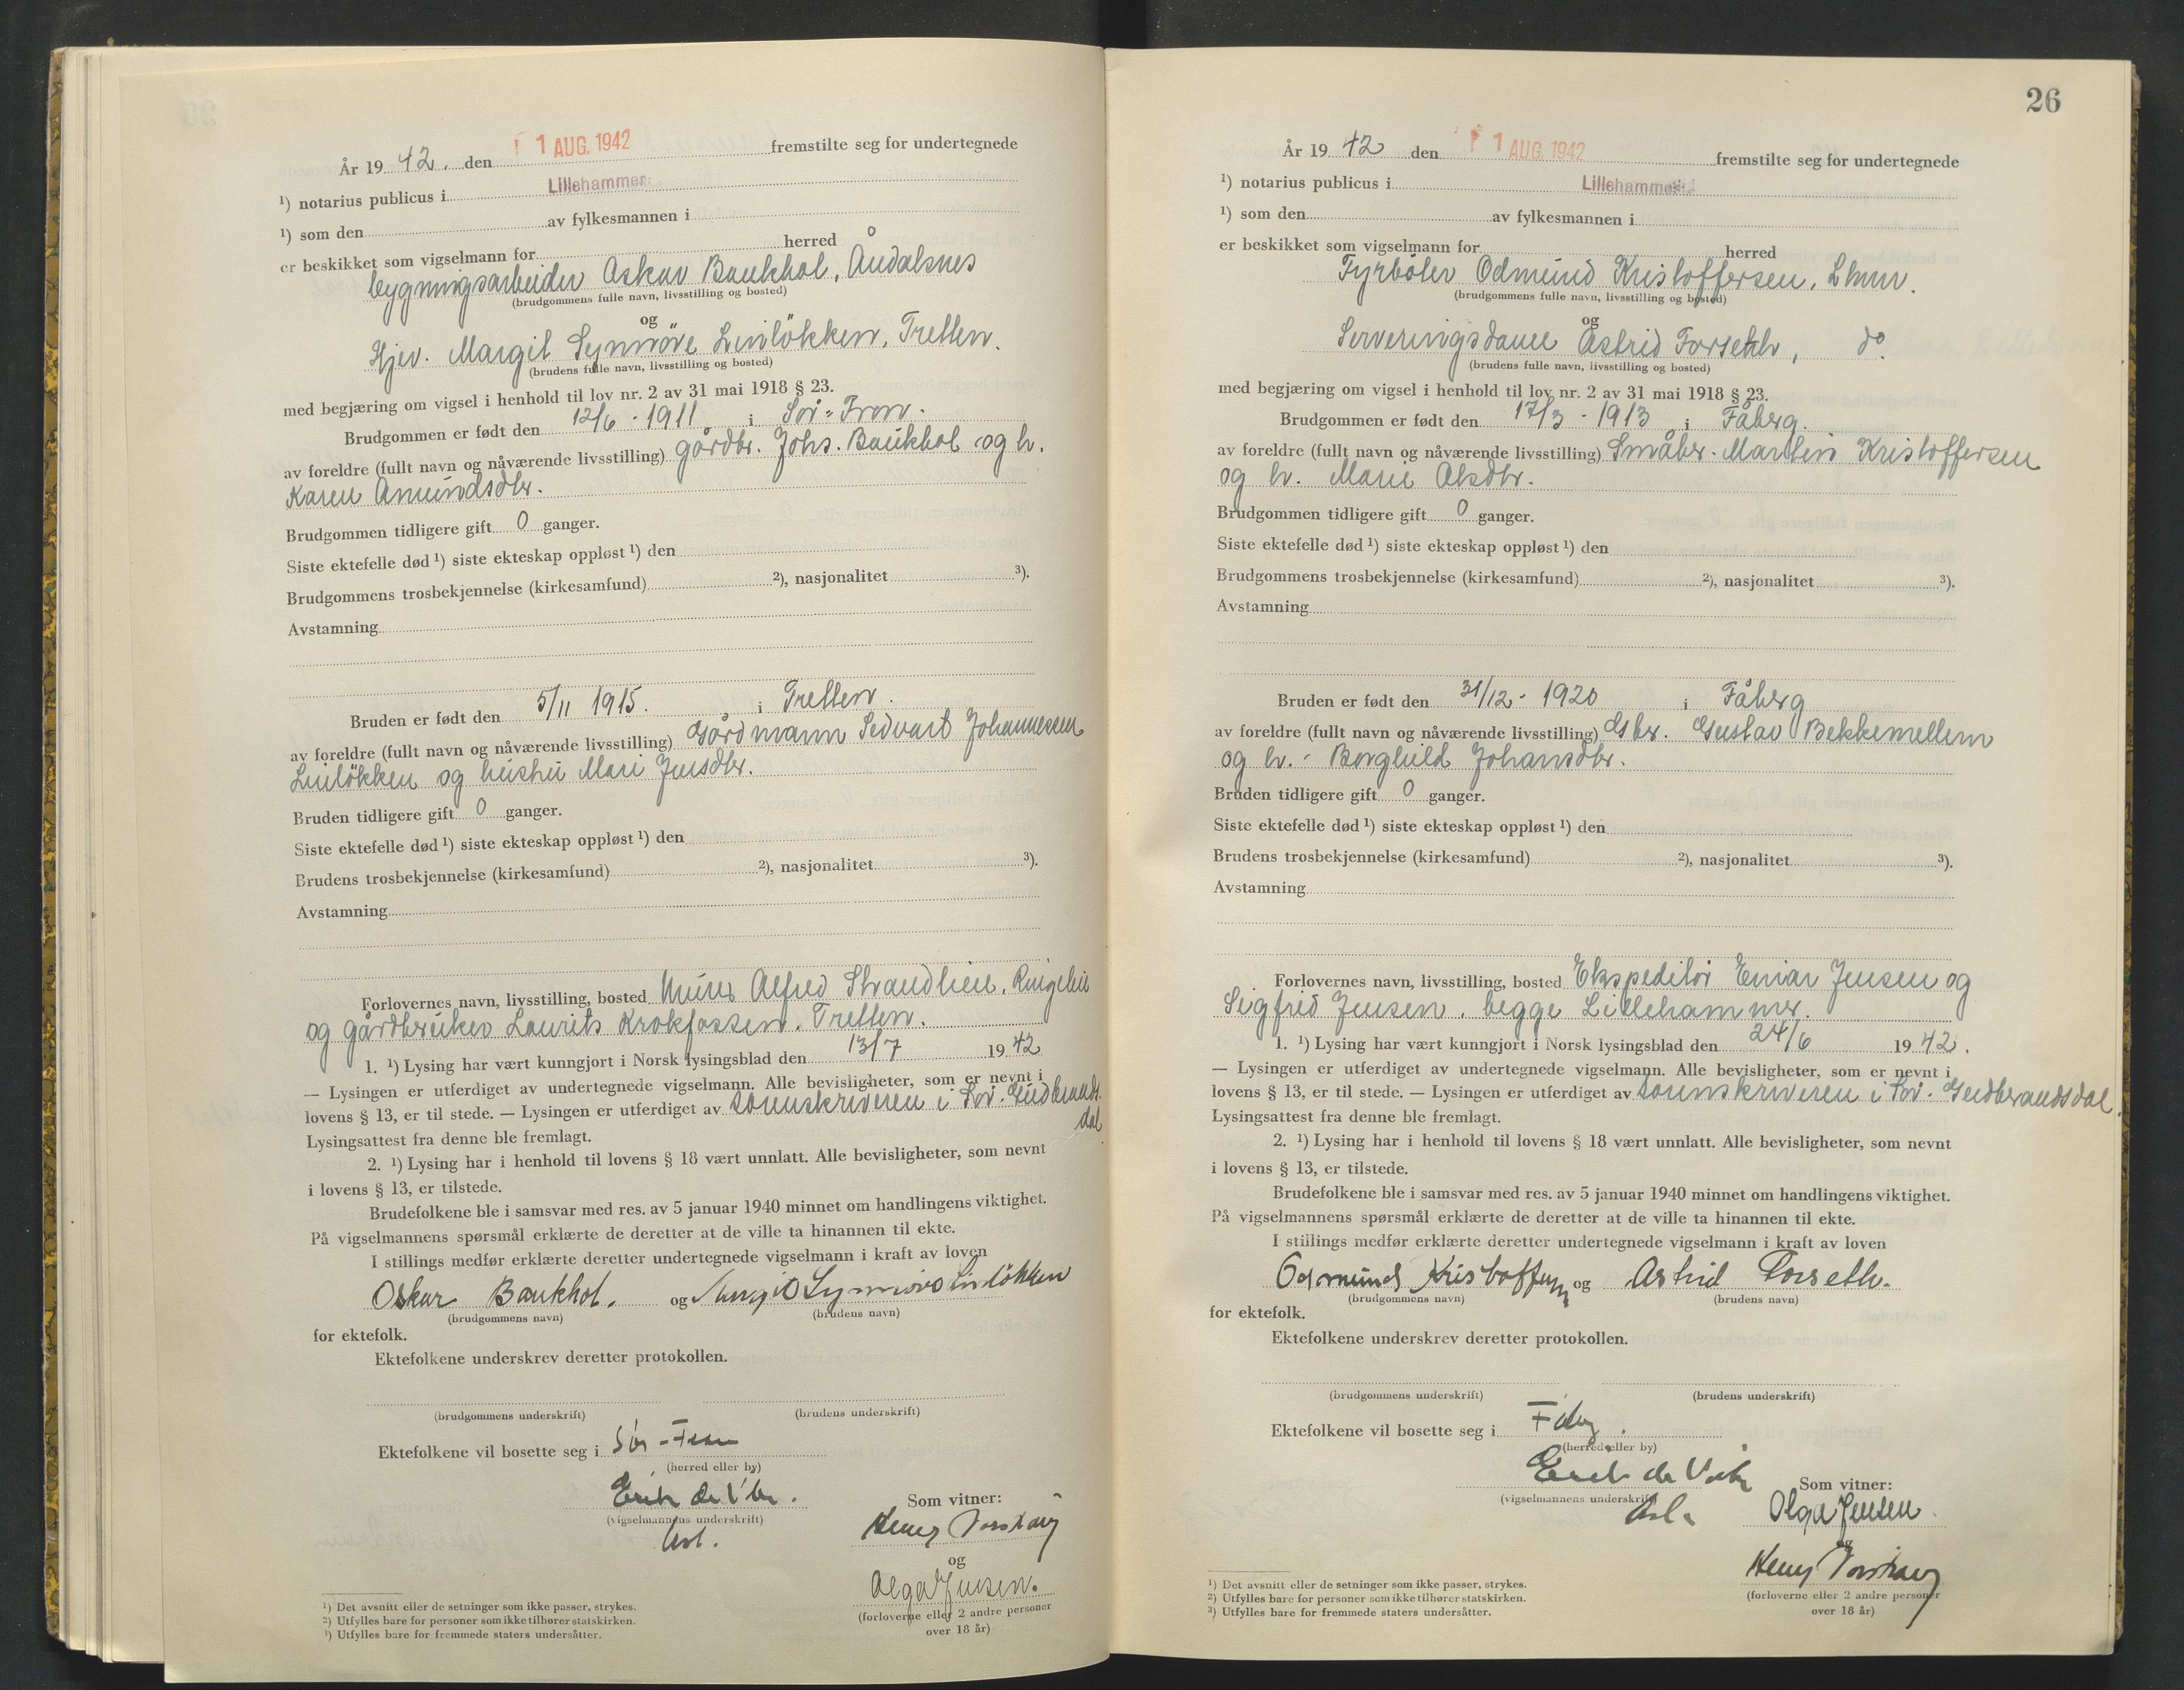 År 19 42. den 1 AUG. 1942 fremstilte seg for undertegnede
¹) notarius publicus i Lillehammer
¹) som den av fylkesmannen i
er beskikket som vigselmann for herred
bygningsarbeider Oskar Baukhol, Åndalsnes
(brudgommens fulle navn, livsstilling og bosted)
og
Hjev. Margit Synnöve Linlökken, Tretten.
(brudens fulle navn, livsstilling og bosted)
med begjæring om vigsel i henhold til lov nr. 2 av 31 mai 1918 § 23.
Brudgommen er født den 12/6 - 1911 i Sör-Fron.
av foreldre (fullt navn og nåværende livsstilling) gårdbr. Johs. Baukhol og h.
Karen Amundsdtr.
Brudgommen tidligere gift 0 ganger.
Siste ektefelle død ¹) siste ekteskap oppløst ¹) den
Brudgommens trosbekjennelse (kirkesamfund) ²), nasjonalitet ³).
Avstamning
Bruden er født den 5/11 1915. i Tretten.
av foreldre (fullt navn og nåværende livsstilling) Gårdmann Sedvart Johannesen
Linlökken og hustru Mari Jensdtr.
Bruden tidligere gift 0 ganger.
Siste ektefelle død ¹) siste ekteskap oppløst ¹) den
Brudens trosbekjennelse (kirkesamfund) ²), nasjonalitet ³).
Avstamning
Forlovernes navn, livsstilling, bosted Murer Alfred Strandlien, Ringebu
og gårdbruker Laurits Krokfossen, Tretten.
1. ¹) Lysing har vært kunngjort i Norsk lysingsblad den 13/7 19 42
— Lysingen er utferdiget av undertegnede vigselmann. Alle bevisligheter, som er nevnt i
lovens § 13, er til stede. — Lysingen er utferdiget av sorenskriveren i Sör-Gudbrands
dal
Lysingsattest fra denne ble fremlagt.
2. ¹) Lysing har i henhold til lovens § 18 vært unnlatt. Alle bevisligheter, som nevnt
i lovens § 13, er tilstede.
Brudefolkene ble i samsvar med res. av 5 januar 1940 minnet om handlingens viktighet.
På vigselmannens spørsmål erklærte de deretter at de ville ta hinannen til ekte.
I stillings medfør erklærte deretter undertegnede vigselmann i kraft av loven
Oskar Baukhol. og Margit Synnöve Linlökken
(brudgommens navn) (brudens navn)
for ektefolk.
Ektefolkene underskrev deretter protokollen.
(brudgommens underskrift) (brudens underskrift)
Ektefolkene vil bosette seg i Sör-Fron
(herred eller by)
Erik de Vibe.
(vigselmannens underskrift)
Som vitner:
Henry
og
Olga Jensen.
(forloverne eller 2 andre personer
over 18 år)
¹) Det avsnitt eller de setninger som ikke passer, strykes.
²) Utfylles bare for personer som ikke tilhører statskirken.
³) Utfylles bare for fremmede staters undersåtter.
26
År 19 42 den 1 AUG. 1942 fremstilte seg for undertegnede
¹) notarius publicus i Lillehammer
¹) som den av fylkesmannen i
er beskikket som vigselmann for herred
Fyrböter Odmund Kristoffersen, Lhmr.
(brudgommens fulle navn, livsstilling og bosted)
og
Serveringsdame Astrid Forseth, do.
(brudens fulle navn, livsstilling og bosted)
med begjæring om vigsel i henhold til lov nr. 2 av 31 mai 1918 § 23.
Brudgommen er født den 17/3 - 1913 i Fåberg.
av foreldre (fullt navn og nåværende livsstilling) Småbr. Martin Kristoffersen
og h. Marie Olsdtr.
Brudgommen tidligere gift 0 ganger.
Siste ektefelle død ¹) siste ekteskap oppløst ¹) den
Brudgommens trosbekjennelse (kirkesamfund) ²), nasjonalitet ³).
Avstamning
Bruden er født den 31/12 - 1920 i Fåberg
av foreldre (fullt navn og nåværende livsstilling) Gbr. Gustav Bekkemellem
og h. - Borghild Johansdtr.
Bruden tidligere gift 0 ganger.
Siste ektefelle død ¹) siste ekteskap oppløst ¹) den
Brudens trosbekjennelse (kirkesamfund) ²), nasjonalitet ³).
Avstamning
Forlovernes navn, livsstilling, bosted Ekspeditör Einar Jensen og
Sigfred Jensen, begge Lillehammer.
1. ¹) Lysing har vært kunngjort i Norsk lysingsblad den 24/6 19 42.
— Lysingen er utferdiget av undertegnede vigselmann. Alle bevisligheter, som er nevnt i
lovens § 13, er til stede. — Lysingen er utferdiget av sorenskriveren i Sör-Gudbrandsdal.
Lysingsattest fra denne ble fremlagt.
2. ¹) Lysing har i henhold til lovens § 18 vært unnlatt. Alle bevisligheter, som nevnt
i lovens § 13, er tilstede.
Brudefolkene ble i samsvar med res. av 5 januar 1940 minnet om handlingens viktighet.
På vigselmannens spørsmål erklærte de deretter at de ville ta hinannen til ekte.
I stillings medfør erklærte deretter undertegnede vigselmann i kraft av loven
Odmund Kristoffersen og Astrid Forseth.
(brudgommens navn) (brudens navn)
for ektefolk.
Ektefolkene underskrev deretter protokollen.
(brudgommens underskrift) (brudens underskrift)
Ektefolkene vil bosette seg i Fåberg.
(herred eller by)
Erik de Vibe
(vigselmannens underskrift)
Som vitner:
Olga Jensen.
og
Henry
(forloverne eller 2 andre personer
over 18 år)
¹) Det avsnitt eller de setninger som ikke passer, strykes.
²) Utfylles bare for personer som ikke tilhører statskirken.
³) Utfylles bare for fremmede staters undersåtter.